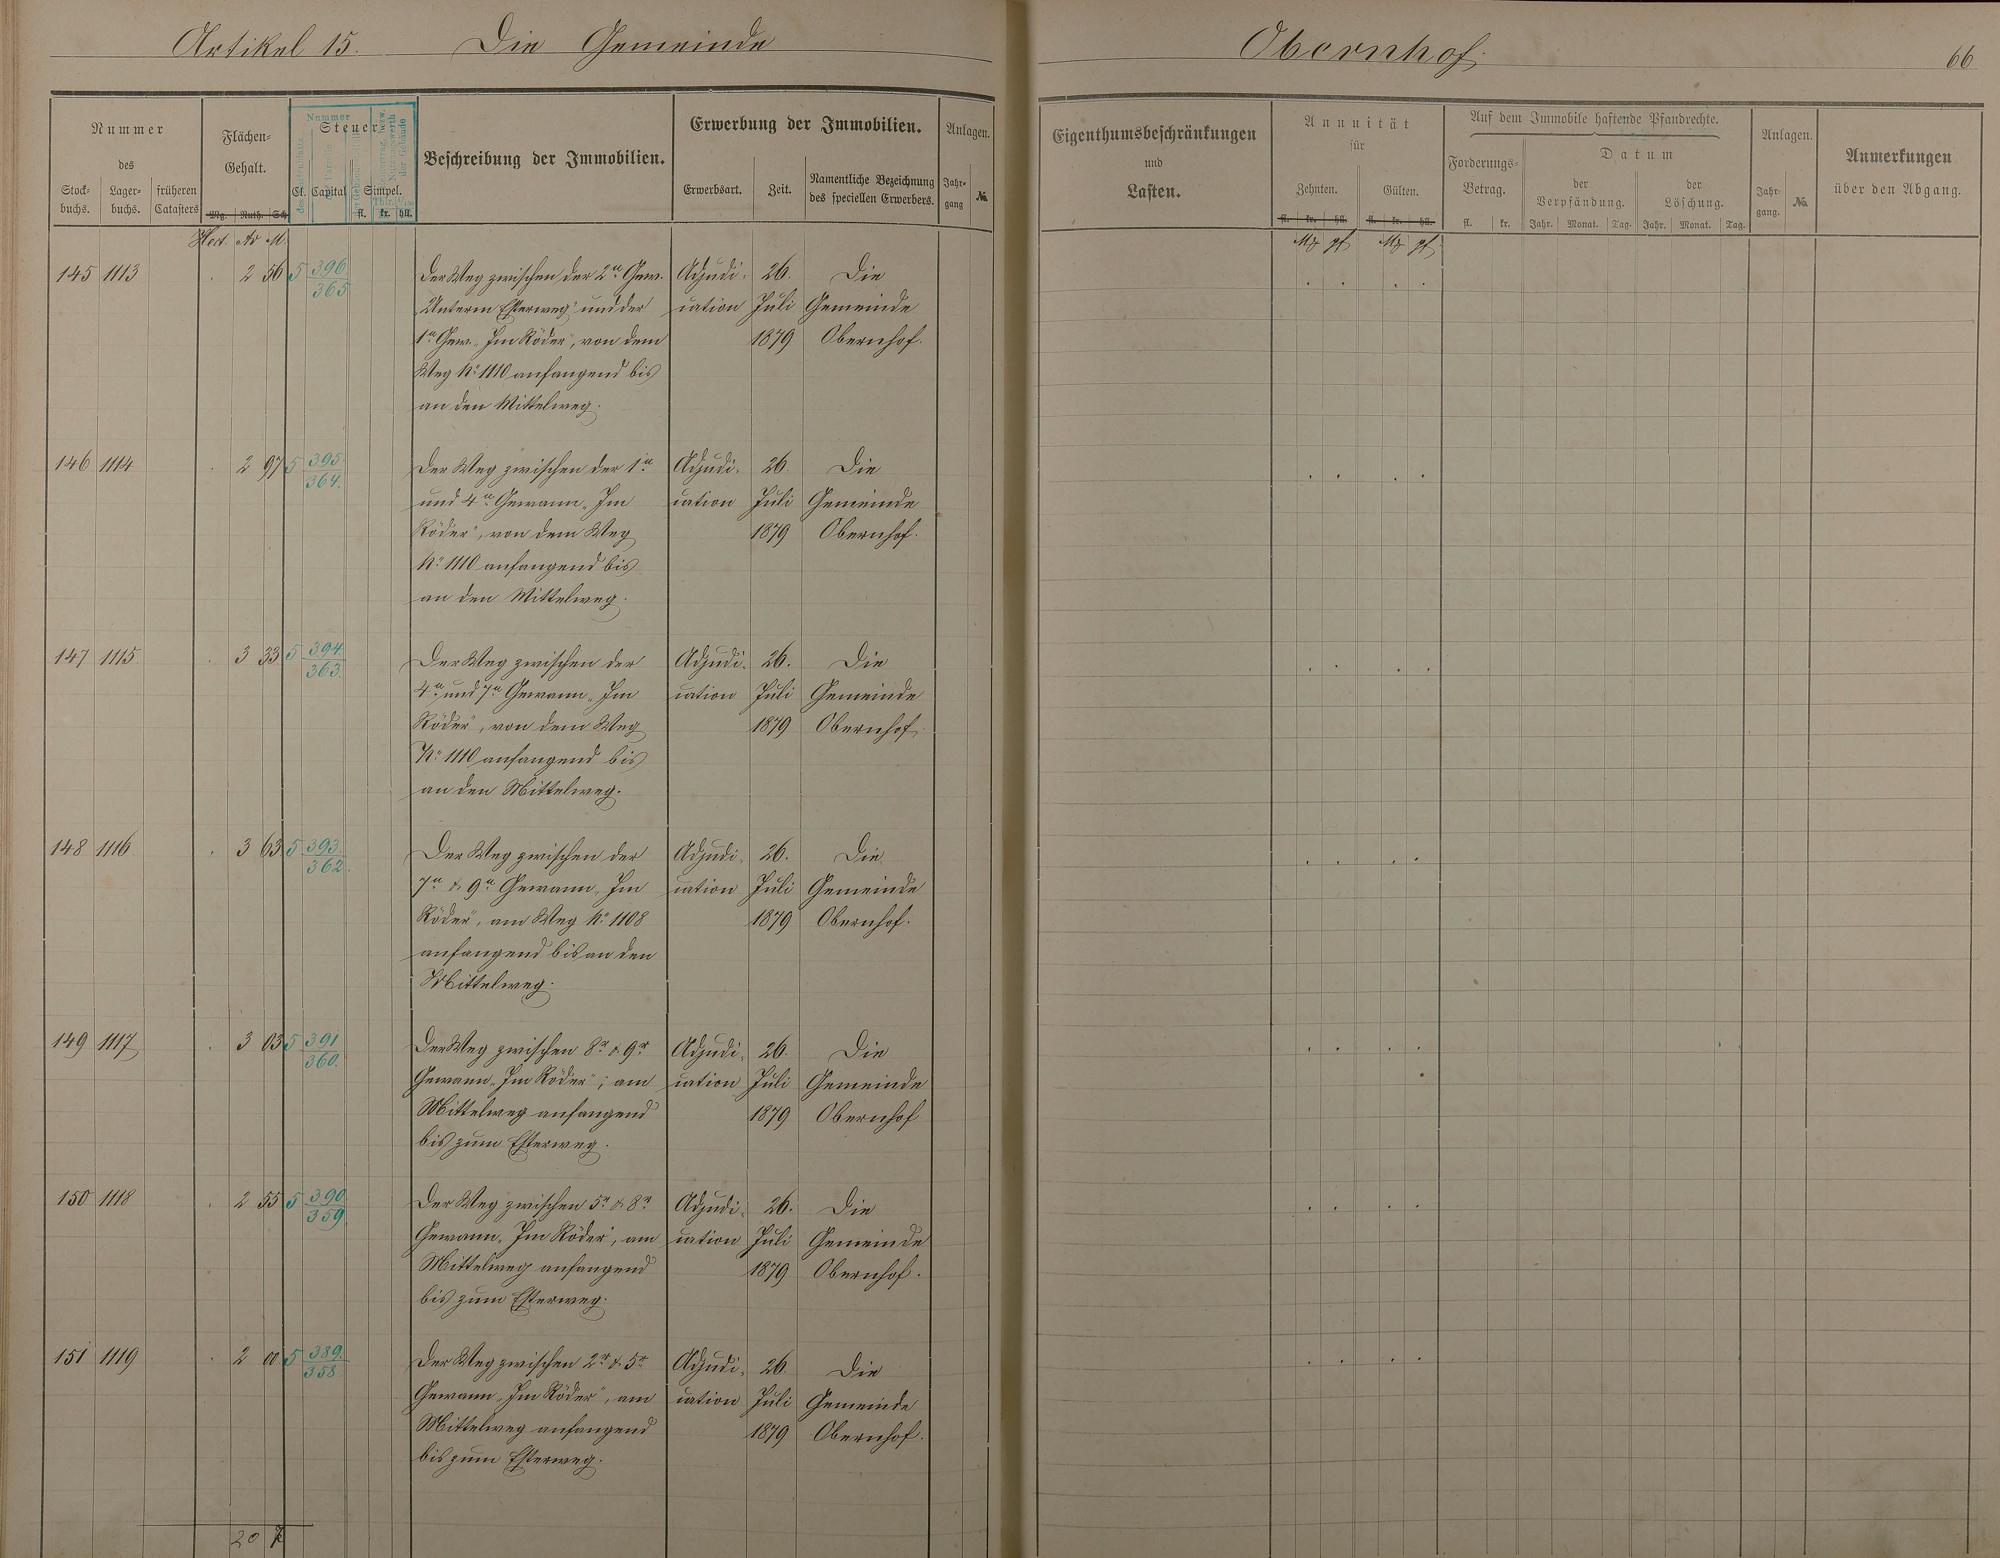 Artikel 15. Die Gemeinde Obernhof. 66
Nummer
des
Stock-
buchs.
Lager-
buchs.
früheren
Catasters
Flächen-
Gehalt.
Mg. Ruth. Sch
Hect. Ar M.
Nummer
Steuer
Cl. Capital Simpel.
fl. kr. hll.
Beschreibung der Immobilien.
Erwerbung der Immobilien.
Erwerbsart. Zeit.
Namentliche Bezeichnung
des speciellen Erwerbers.
Anlagen.
Jahr-
gang
No.
Eigenthumsbeschränkungen
und
Lasten.
Annuität
für
Zehnten. Gülten.
fl. kr. hll. fl. kr. hll.
Auf dem Immobile haftende Pfandrechte.
Forderungs-
Betrag.
fl. kr.
Datum
der
Verpfändung.
Jahr. Monat. Tag.
der
Löschung.
Jahr. Monat. Tag.
Anlagen.
Jahr-
gang.
No.
Anmerkungen
über den Abgang.
145 1113 2 56 5 396
365
Der Weg zwischen der 2n Gew. Adjudi- 26. Die
Unterm Esterweg" und der cation Juli Gemeinde
1n Gew. „Im Röder", von dem 1879 Obernhof.
Weg No 1110 anfangend bis
an den Mittelweg.
146 1114 2 97 5 395
364.
Der Weg zwischen der 1n Adjudi- 26. Die
und 4n Gewann „Im cation Juli Gemeinde
Röder", von dem Weg 1879 Obernhof.
No 1110 anfangend bis
an den Mittelweg.
147 1115 3 33 5 394.
363.
Der Weg zwischen der Adjudi- 26. Die
4n und 7n Gewann „Im cation Juli Gemeinde
Röder", von dem Weg 1879 Obernhof.
No 1110 anfangend bis
an den Mittelweg.
148 1116 3 63 5 393.
362.
Der Weg zwischen der Adjudi- 26. Die
7n & 9n Gewann „Im cation Juli Gemeinde
Röder", am Weg No 1108 1879 Obernhof.
anfangend bis an den
Mittelweg.
149 1117 3 03 5 391
360.
Der Weg zwischen 8r & 9r Adjudi- 26. Die
Gewann „Im Röder", am cation Juli Gemeinde
Mittelweg anfangend 1879 Obernhof
bis zum Esterweg.
150 1118 2 55 5 390
359
Der Weg zwischen 5r & 8r Adjudi- 26. Die
Gewann „Im Röder", am cation Juli Gemeinde
Mittelweg anfangend 1879 Obernhof.
bis zum Esterweg.
151 1119 2 00 5 389.
358
Der Weg zwischen 2r & 5r Adjudi- 26. Die
Gewann „Im Röder", am cation Juli Gemeinde
Mittelweg anfangend 1879 Obernhof.
bis zum Esterweg.
20